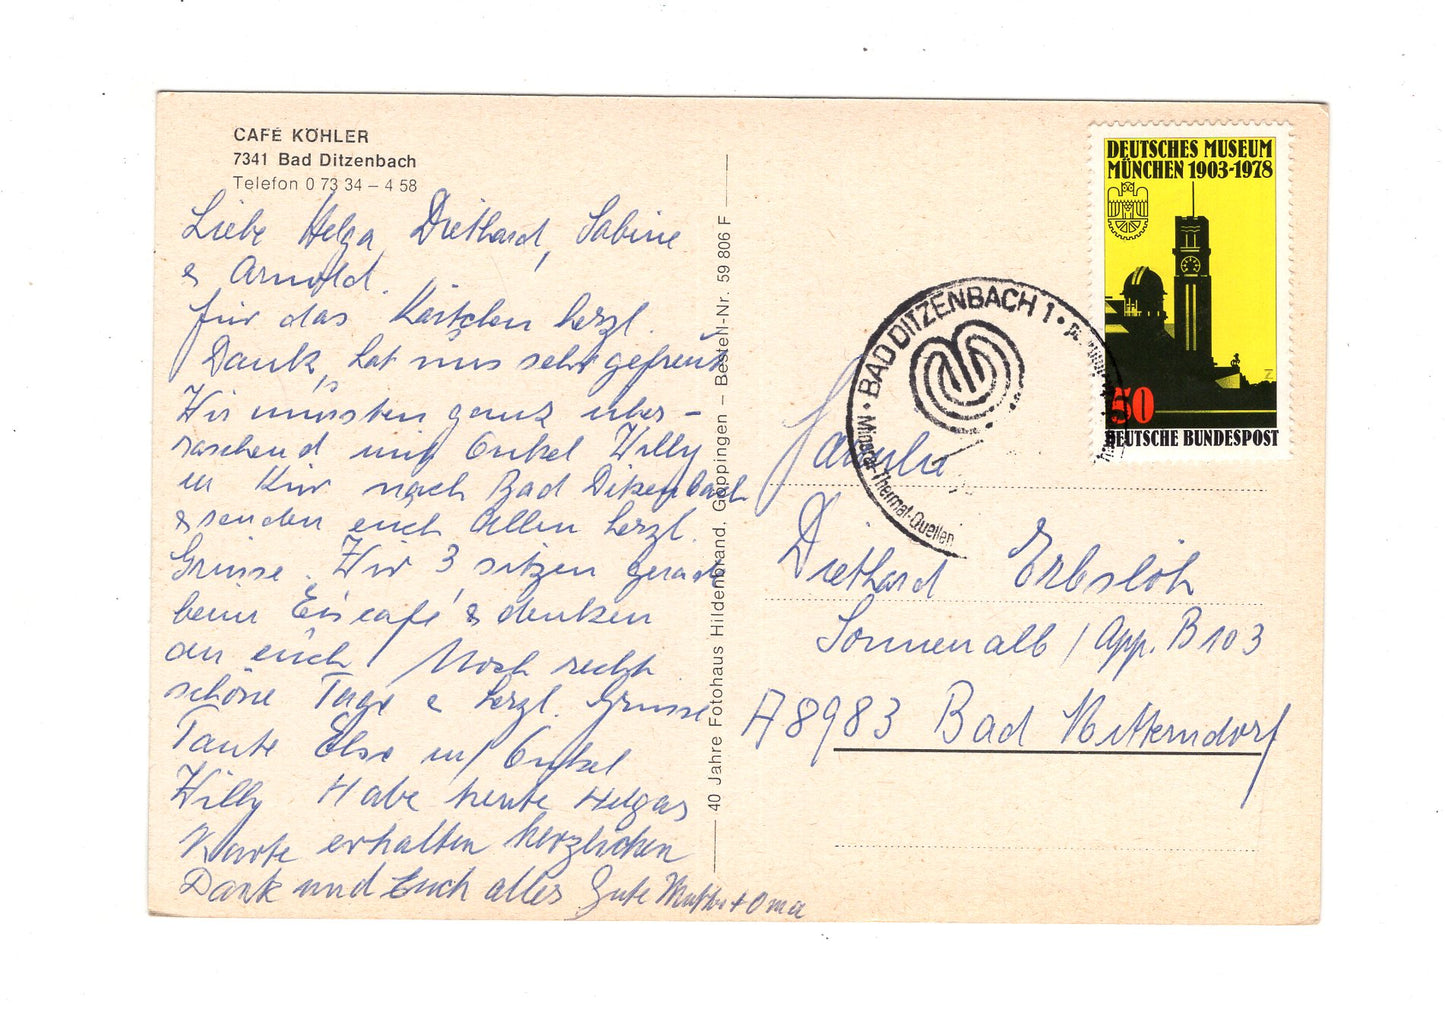 CAFÉ KÖHLER
7341 Bad Ditzenbach
Telefon 0 73 34 – 4 58
Liebe Helga, Diethard, Sabine
& Arnold.
für das Kärtchen herzl.
Dank, hat uns sehr gefreut.
Wir mussten ganz über-
raschend mit Onkel Willy
in Kur nach Bad Ditzenbach
& senden euch Allen herzl.
Grüsse. Wir 3 sitzen gerade
beim Eiscafé & denken
an euch! Noch recht
schöne Tage & herzl. Grüsse
Tante Else u/ Onkel
Willy Habe heute Helgas
Karte erhalten herzlichen
Dank und Euch alles Gute Mutter + Oma
40 Jahre Fotohaus Hildenbrand, Göppingen – Bestell-Nr. 59 806 F
DEUTSCHES MUSEUM
MÜNCHEN 1903-1978
Z
50
DEUTSCHE BUNDESPOST
BAD DITZENBACH 1
Mineral-Thermal-Quellen
Familie
Diethard Erbslöh
Sonnenalb / App. B 103
A 8983 Bad Mitterndorf